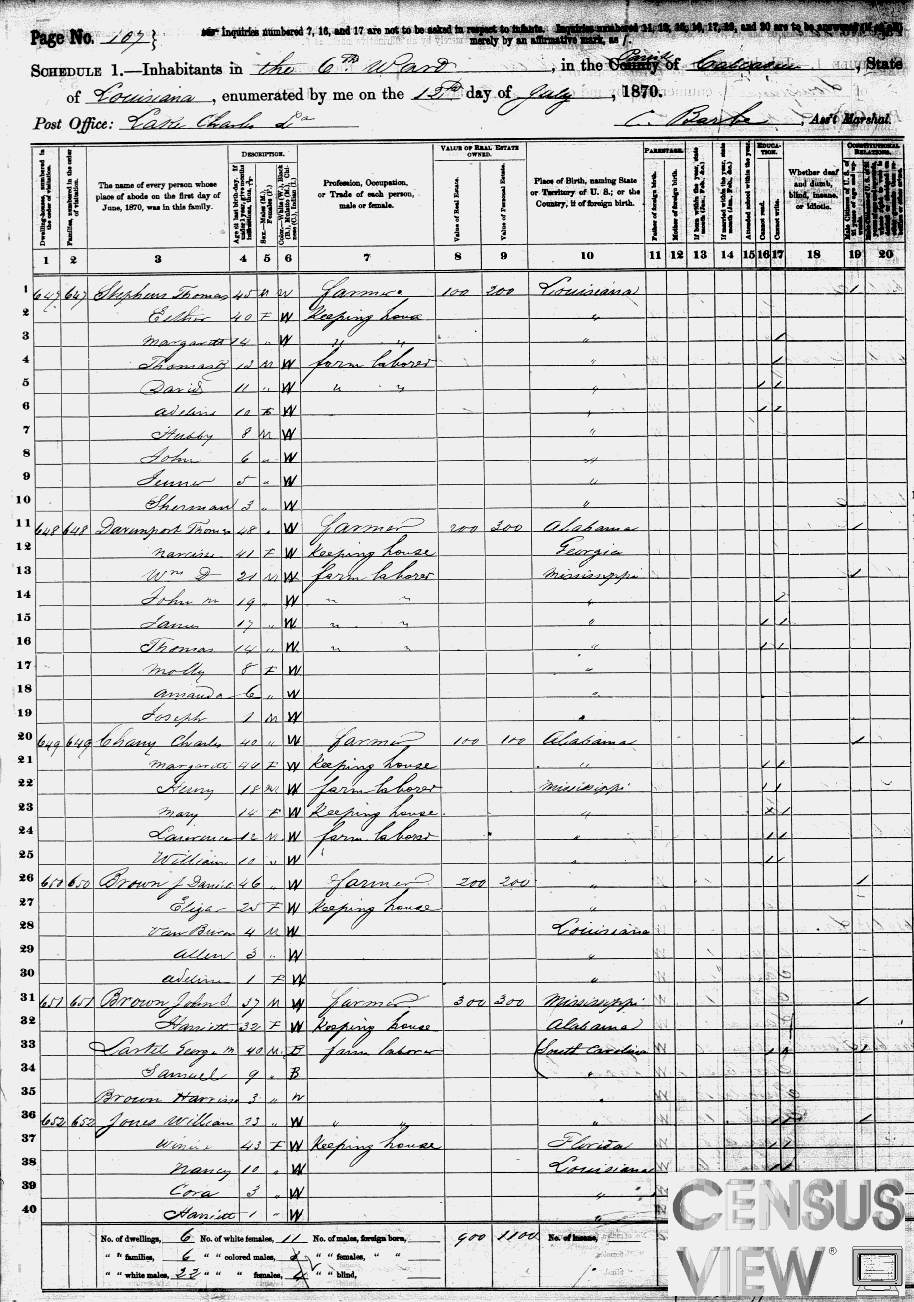 Page No. 107
Inquiries numbered 7, 16, and 17 are not to be asked in respect to infants. Inquiries numbered 11, 12, 15, 16, 17, 19, and 20 are to be answered (if at all) merely by an affirmative mark, as /.
SCHEDULE 1.—Inhabitants in the 6th Ward, in the County of Calcasieu, State
of Louisiana, enumerated by me on the 12th day of July, 1870.
Post Office: Lake Charles La
C. Barbe, Ass't Marshal.
Dwelling-houses, numbered in the order of visitation.
Families, numbered in the order of visitation.
The name of every person whose place of abode on the first day of June, 1870, was in this family.
DESCRIPTION.
Profession, Occupation, or Trade of each person, male or female.
VALUE OF REAL ESTATE OWNED.
Value of Real Estate.
Value of Personal Estate.
Place of Birth, naming State or Territory of U. S.; or the Country, if of foreign birth.
PARENTAGE.
Father of foreign birth.
Mother of foreign birth.
If born within the year, state month (Jan., Feb., &c.)
If married within the year, state month (Jan., Feb., &c.)
Attended school within the year.
EDUCATION.
Cannot read.
Cannot write.
Whether deaf and dumb, blind, insane, or idiotic.
CONSTITUTIONAL RELATIONS.
1 2 3 4 5 6 7 8 9 10 11 12 13 14 15 16 17 18 19 20
1 647 647 Stephens Thomas 45 M W farmer 100 200 Louisiana /
2 Esther 40 F W Keeping house "
3 Margarett 14 " W " " " /
4 Thomas 12 M W farm laborer " /
5 David 11 " W " " " / /
6 Adeline 10 F W " / /
7 8 M W "
8 John 6 " W "
9 5 " W "
10 Sherman 3 " W "
11 648 648 Davenport Thomas 48 " W farmer 200 300 Alabama /
12 Narcisse 41 F W Keeping house Georgia
13 Wm D 21 M W farm laborer Mississippi /
14 John M 19 " W " " "
15 James 17 " W " " " / /
16 Thomas 14 " W " " " / /
17 Molly 8 F W "
18 Amanda 6 " W "
19 Joseph 1 M W "
20 649 649 Chany Charles 40 " W farmer 100 100 Alabama /
21 Margarett 44 F W Keeping house " / /
22 Henry 18 M W farm laborer Mississippi / /
23 Mary 14 F W Keeping house " / /
24 Lawrence 12 M W farm laborer " / /
25 William 10 " W " / /
26 650 650 Brown J Daniel 46 " W farmer 200 200 " /
27 Elizar 25 F W Keeping house "
28 Van Buren 4 M W Louisiana
29 Allen 3 " W "
30 Adeline 1 F W "
31 651 651 Brown John S 37 M W farmer 300 300 Mississippi /
32 Harriett 32 F W Keeping house Alabama
33 George M 40 M B farm laborer South Carolina / /
34 Samuel 9 " B "
35 Brown Harrison 3 " W "
36 652 652 Jones William 23 " W " " " / / /
37 43 F W Keeping house Florida / /
38 Nancy 10 " W Louisiana / /
39 Cora 3 " W "
40 Harriett 1 " W "
No. of dwellings, 6 No. of white females, 11 No. of males, foreign born, 900 1100 No. of insane,
" " families, 6 " " colored males, 2 " " females, " "
" " white males, 22 " " " females, " " blind,
CENSUS
VIEW ®